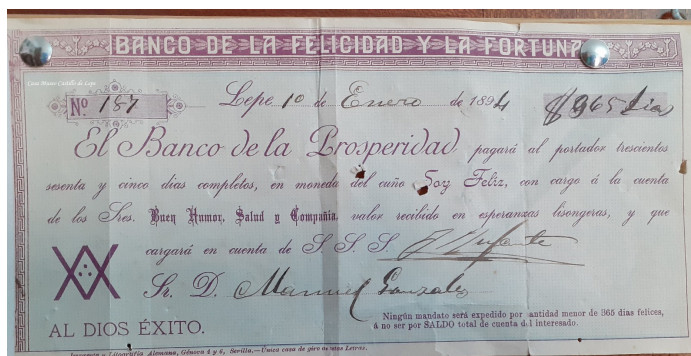 BANCO DE LA FELICIDAD Y LA FORTUNA
Casa Museo Castillo de Lepe
Nº 187 Lepe 1º de Enero de 1894 $365 Dias
El Banco de la Prosperidad pagará al portador trescientos
sesenta y cinco dias completos, en moneda del cuño Soy Feliz, con cargo á la cuenta
de los Sres. Buen Humor, Salud y Compañia, valor recibido en esperanzas lisongeras, y que
cargará en cuenta de S. S. S. J Infante
Sr. D. Manuel Gonzales
AL DIOS ÉXITO.
Ningún mandato será expedido por cantidad menor de 365 dias felices,
á no ser por SALDO total de cuenta del interesado.
Imprenta y Litografía Alemana, Génova 4 y 6, Sevilla.—Única casa de giro en estas Letras.